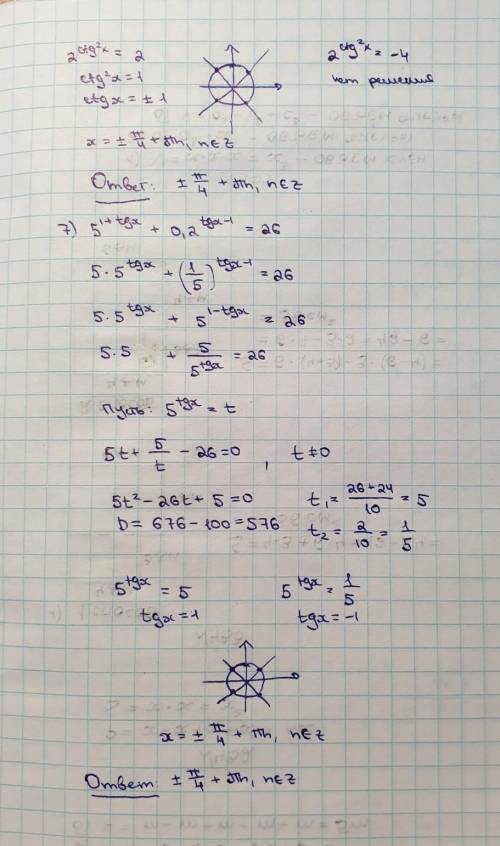 2^ctg²x = 2
2^ctg²x = -4
ctg²x = 1
нет решения
ctgx = ± 1
x = ± π/4 + πn, n∈Z
Ответ: ± π/4 + πn, n∈Z
7) 5^1+tgx + 0,2^tgx-1 = 26
5·5^tgx + (1/5)^tgx-1 = 26
5·5^tgx + 5^1-tgx = 26
5·5 + 5/5^tgx = 26
Пусть: 5^tgx = t
5t + 5/t - 26 = 0, t ≠ 0
5t² - 26t + 5 = 0
t₁ = 26+24/10 = 5
D = 676 - 100 = 576
t₂ = 2/10 = 1/5
5^tgx = 5
5^tgx = 1/5
tgx = 1
tgx = -1
x = ± π/4 + πn, n∈Z
Ответ: ± π/4 + πn, n∈Z